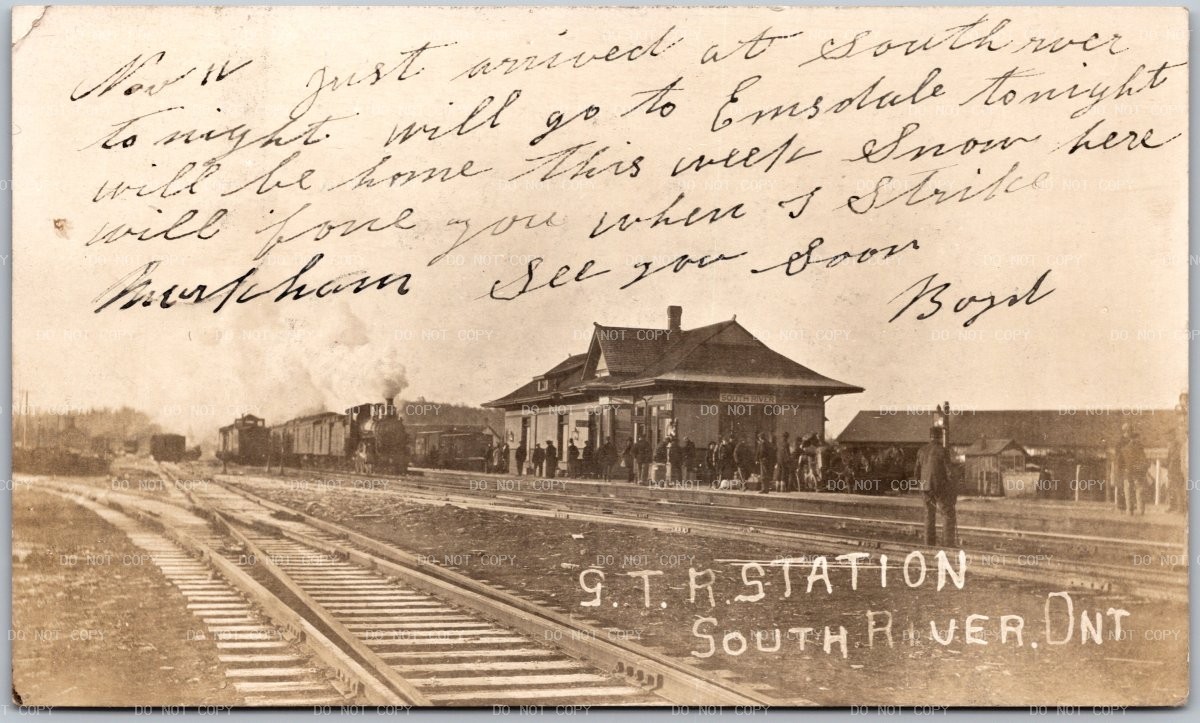 Nov 11 Just arrived at South river
to night. will go to Emsdale tonight
will be home this week Snow here
will fone you when I Strike
Markham See you Soon
Boyd
SOUTH RIVER
G.T.R. STATION
SOUTH RIVER. ONT
DO NOT COPY